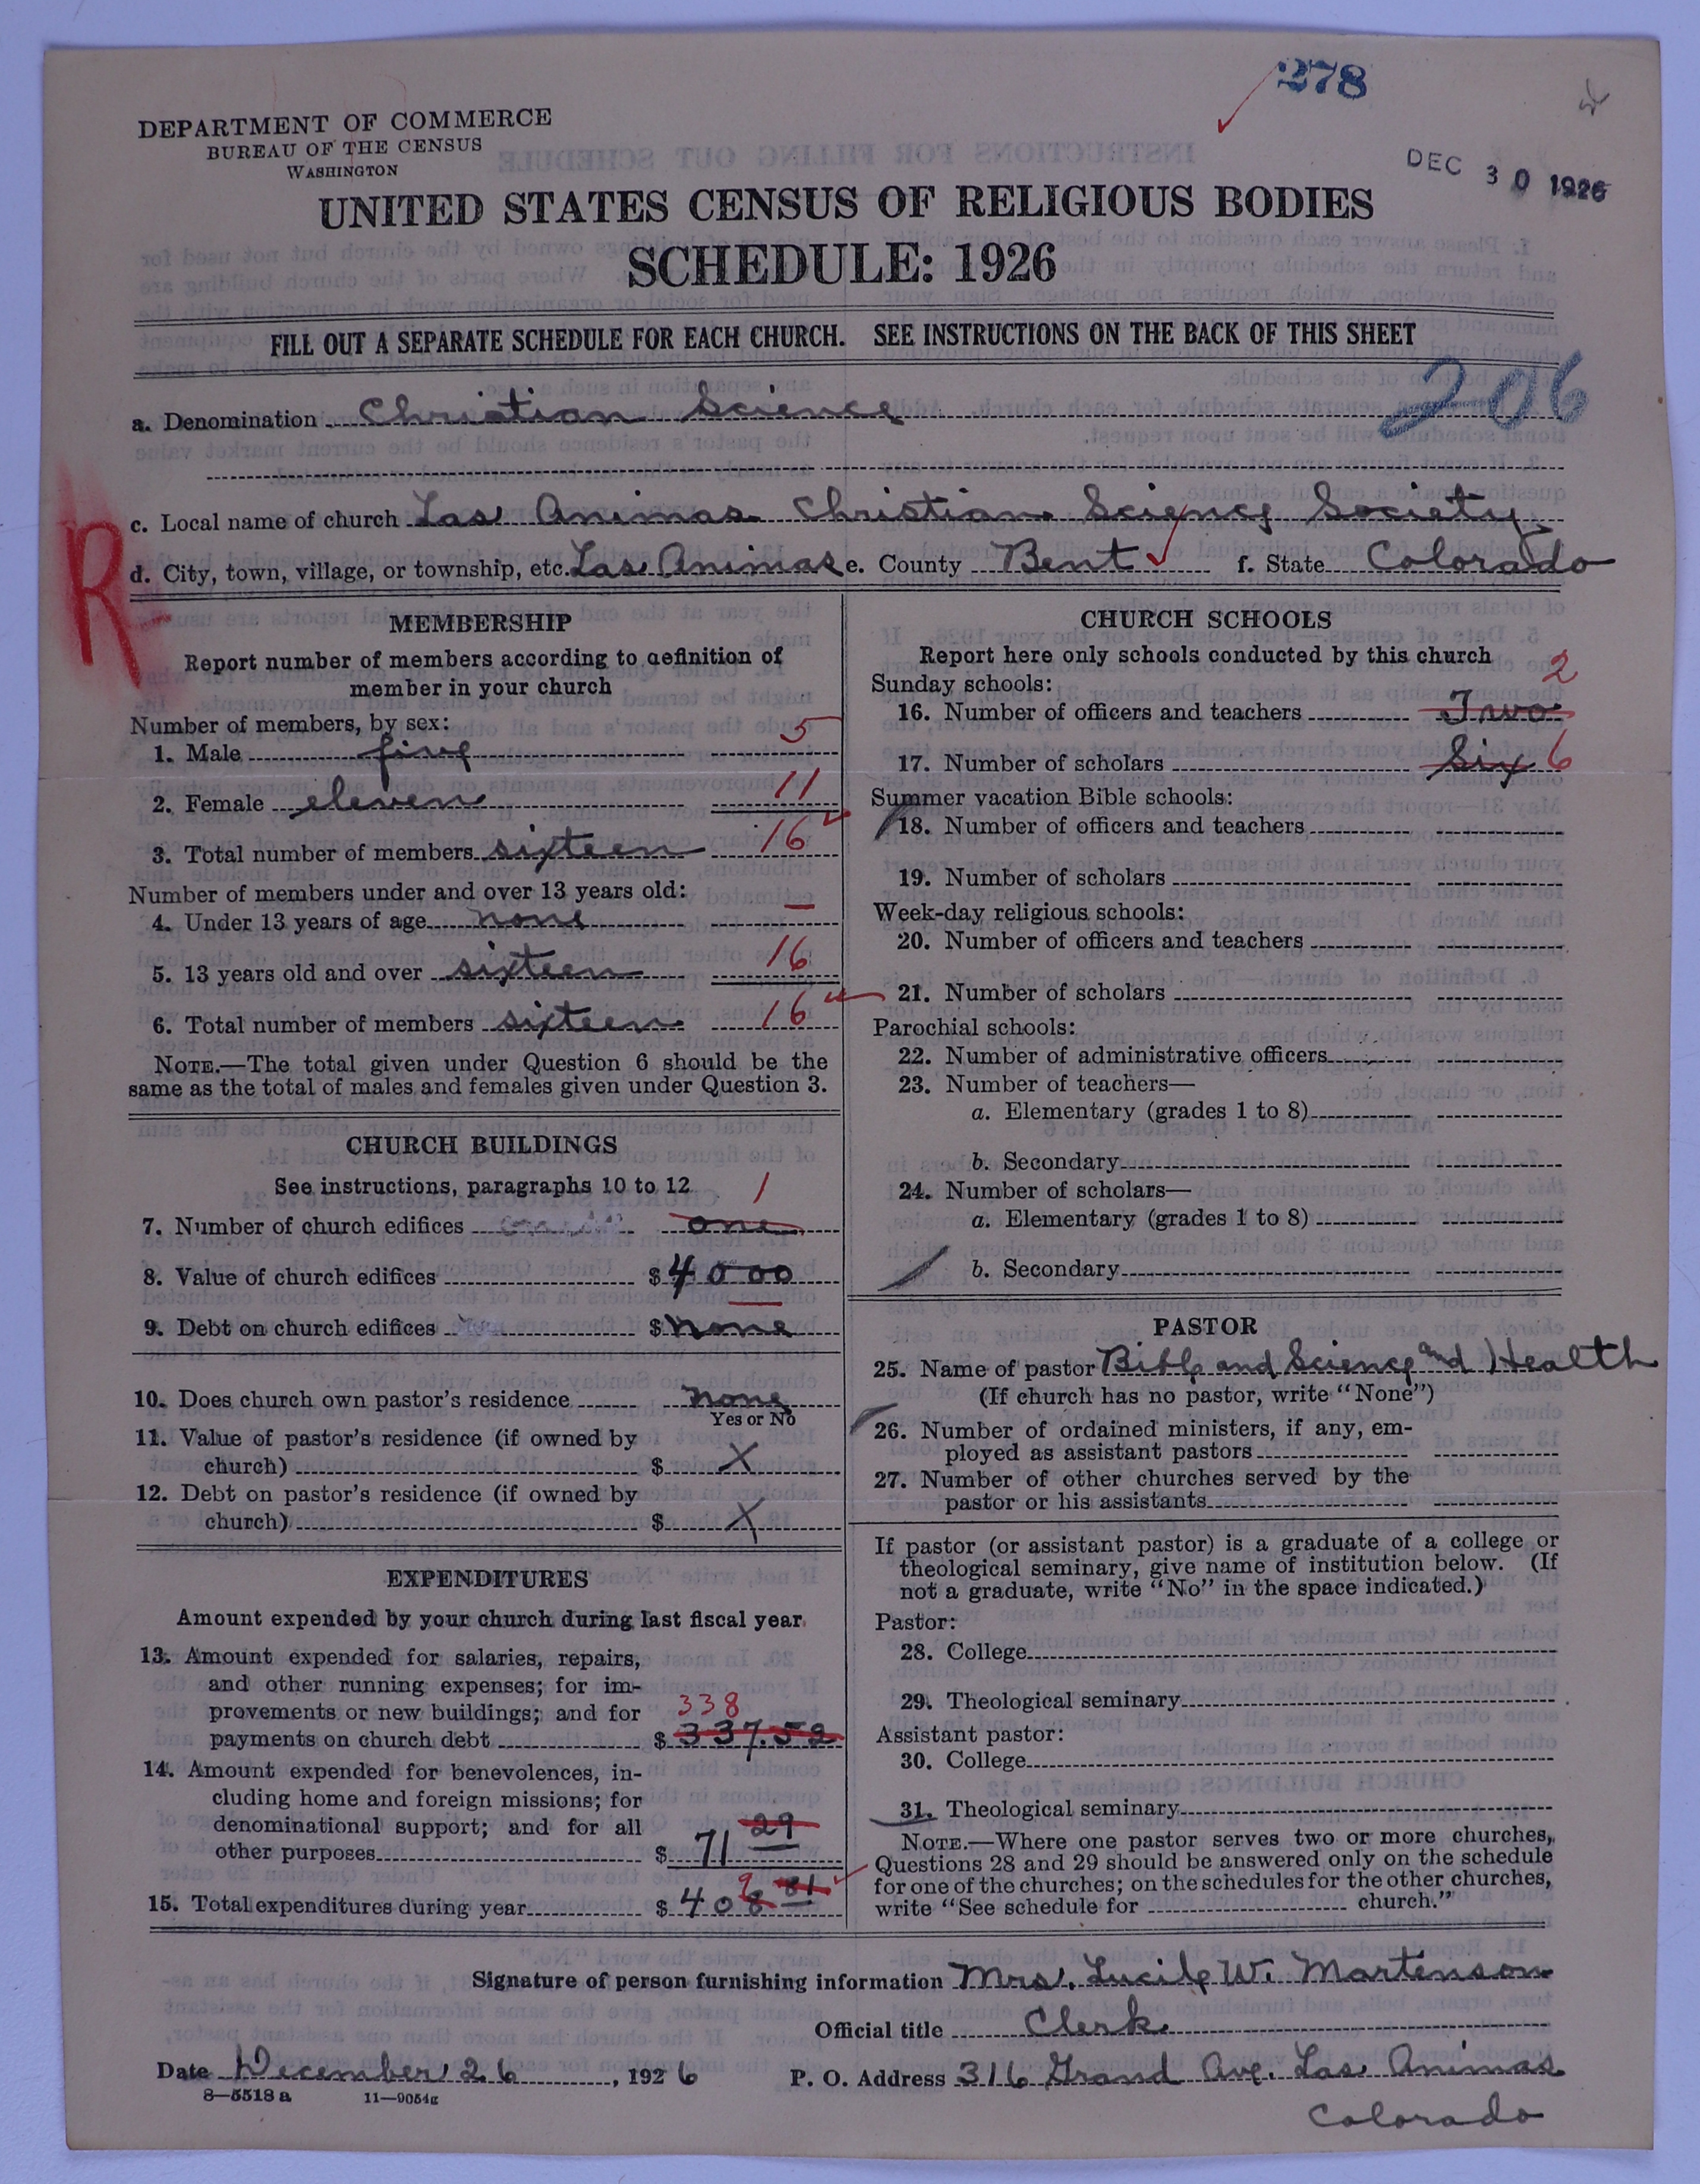 278
DEPARTMENT OF COMMERCE
BUREAU OF THE CENSUS
WASHINGTON
DEC 30 1926
UNITED STATES CENSUS OF RELIGIOUS BODIES
SCHEDULE: 1926
FILL OUT A SEPARATE SCHEDULE FOR EACH CHURCH. SEE INSTRUCTIONS ON THE BACK OF THIS SHEET
206
a. Denomination Christian Science
R
c. Local name of church Las Animas Christian Science Society
d. City, town, village, or township, etc. Las Animas e. County Bent f. State Colorado
MEMBERSHIP
Report number of members according to definition of
member in your church
Number of members, by sex:
1. Male five 5
2. Female eleven 11
3. Total number of members sixteen 16
Number of members under and over 13 years old:
4. Under 13 years of age none —
5. 13 years old and over sixteen 16
6. Total number of members sixteen 16
NOTE.—The total given under Question 6 should be the
same as the total of males and females given under Question 3.
CHURCH BUILDINGS
See instructions, paragraphs 10 to 12 1
7. Number of church edifices one
8. Value of church edifices $ 4000
9. Debt on church edifices $ none
10. Does church own pastor's residence none
Yes or No
11. Value of pastor's residence (if owned by
church) $ X
12. Debt on pastor's residence (if owned by
church) $ X
EXPENDITURES
Amount expended by your church during last fiscal year
13. Amount expended for salaries, repairs,
and other running expenses; for im-
provements or new buildings; and for 338
payments on church debt $ 337.52
14. Amount expended for benevolences, in-
cluding home and foreign missions; for
denominational support; and for all
other purposes $ 71 29
15. Total expenditures during year $ 408 81 9
CHURCH SCHOOLS
Report here only schools conducted by this church
Sunday schools: 2
16. Number of officers and teachers Two
17. Number of scholars Six 6
Summer vacation Bible schools:
18. Number of officers and teachers
19. Number of scholars
Week-day religious schools:
20. Number of officers and teachers
21. Number of scholars
Parochial schools:
22. Number of administrative officers
23. Number of teachers—
a. Elementary (grades 1 to 8)
b. Secondary
24. Number of scholars—
a. Elementary (grades 1 to 8)
b. Secondary
PASTOR
25. Name of pastor Bible and Science and Health
(If church has no pastor, write "None")
26. Number of ordained ministers, if any, em-
ployed as assistant pastors
27. Number of other churches served by the
pastor or his assistants
If pastor (or assistant pastor) is a graduate of a college or
theological seminary, give name of institution below. (If
not a graduate, write "No" in the space indicated.)
Pastor:
28. College
29. Theological seminary
Assistant pastor:
30. College
31. Theological seminary
NOTE.—Where one pastor serves two or more churches,
Questions 28 and 29 should be answered only on the schedule
for one of the churches; on the schedules for the other churches,
write "See schedule for church."
Signature of person furnishing information Mrs. Lucile W. Martenson
Official title Clerk
Date December 26, 1926 P. O. Address 316 Grand Ave. Las Animas
8—5518 a 11—9054g
Colorado